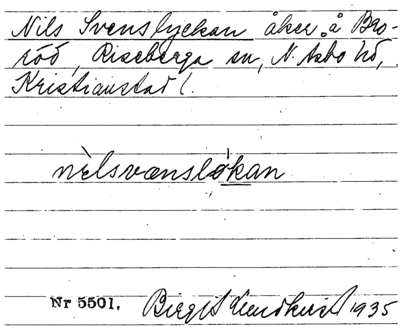 Nils Svenslyckan åker å Bro-
röd, Riseberga sn, N. Åsbo hd,
Kristianstad l.
nìlsvænslǿkan
Nr 5501. Birgit Lundkvist 1935